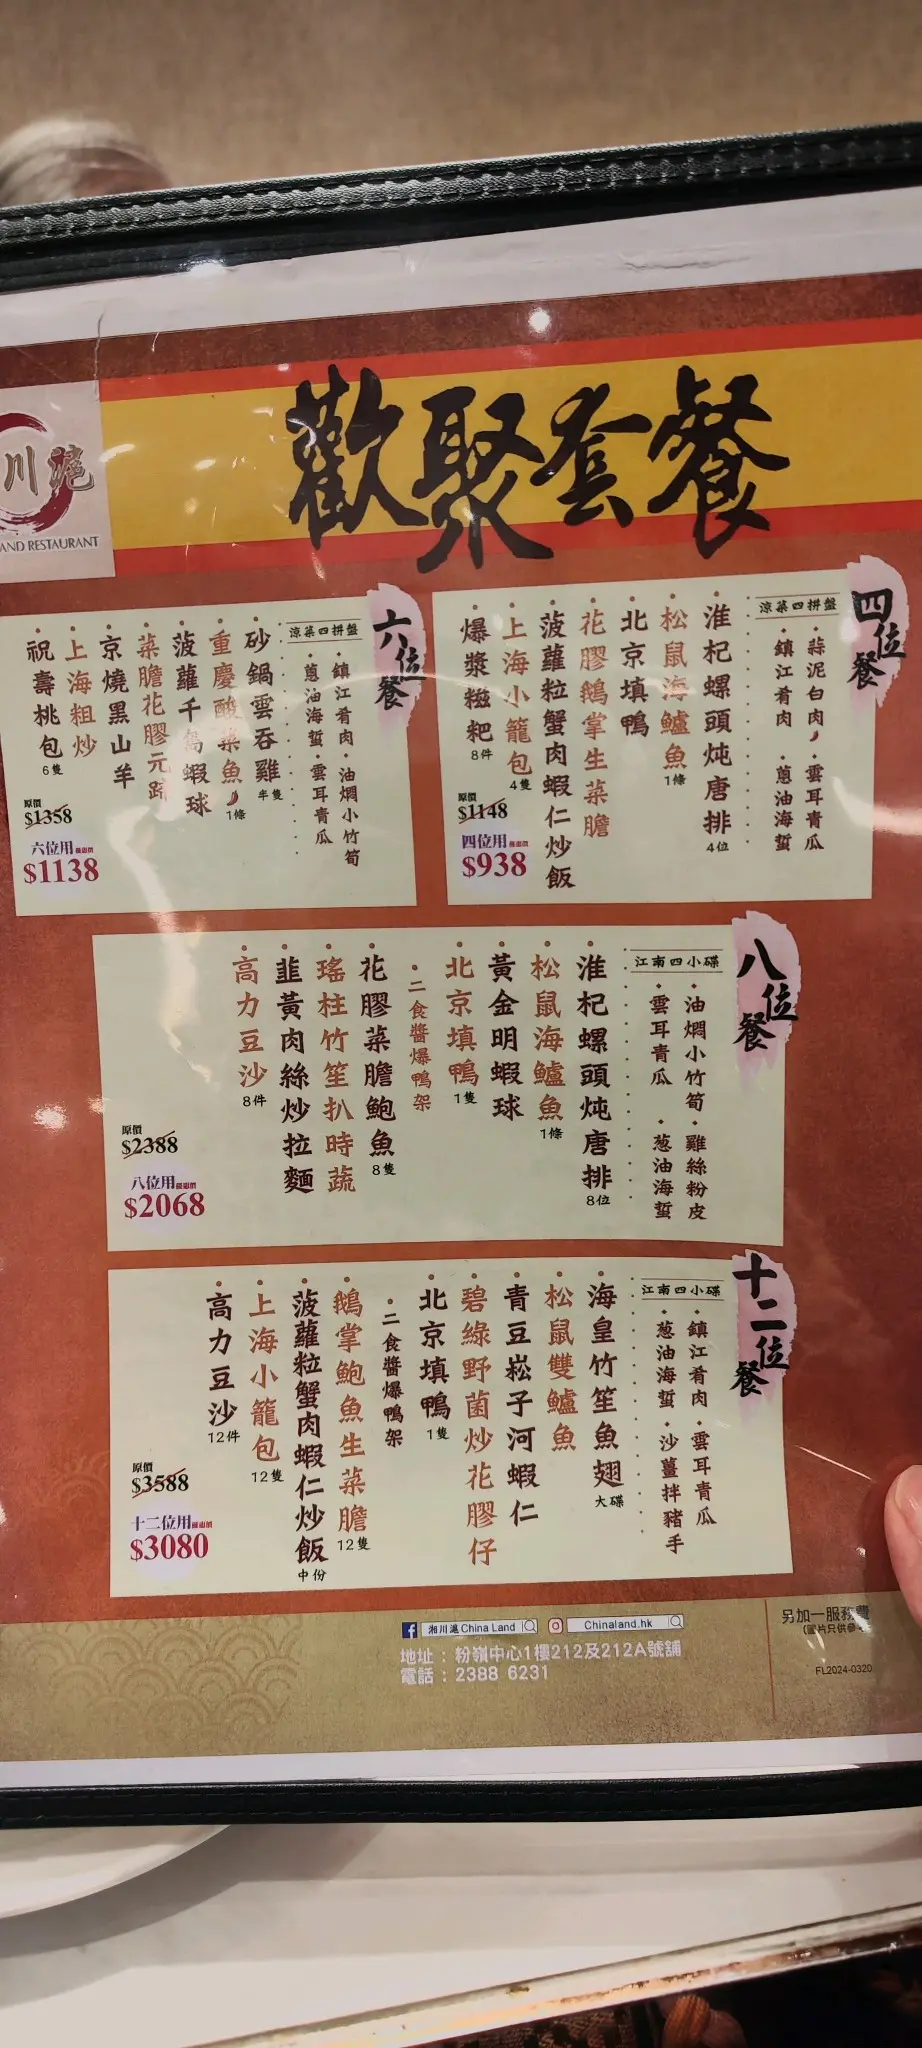 歡聚套餐
川滬
AND RESTAURANT
四位餐
涼菜四拼盤
·蒜泥白肉 ·雲耳青瓜
·鎮江肴肉 ·蔥油海蜇
·淮杞螺頭炖唐排 4位
·松鼠海鱸魚 1條
·北京填鴨
·花膠鵝掌生菜膽
·菠蘿粒蟹肉蝦仁炒飯
·上海小籠包 4隻
·爆漿糍粑 8件
原價
$1148
四位用優惠價
$938
六位餐
涼菜四拼盤
·鎮江肴肉 ·油燜小竹筍
·蔥油海蜇 ·雲耳青瓜
·砂鍋雲吞雞 半隻
·重慶酸菜魚 1條
·菠蘿千島蝦球
·菜膽花膠元蹄
·京燒黑山羊
·上海粗炒
·祝壽桃包 6隻
原價
$1358
六位用優惠價
$1138
八位餐
江南四小碟
·油燜小竹筍 ·雞絲粉皮
·雲耳青瓜 ·葱油海蜇
·淮杞螺頭炖唐排 8位
·松鼠海鱸魚 1條
·黃金明蝦球
·北京填鴨 1隻
·二食醬爆鴨架
·花膠菜膽鮑魚 8隻
·瑤柱竹笙扒時蔬
·韮黃肉絲炒拉麵
·高力豆沙 8件
原價
$2388
八位用優惠價
$2068
十二位餐
江南四小碟
·鎮江肴肉 ·雲耳青瓜
·葱油海蜇 ·沙薑拌豬手
·海皇竹笙魚翅 大碟
·松鼠雙鱸魚
·青豆崧子河蝦仁
·碧綠野菌炒花膠仔
·北京填鴨 1隻
·二食醬爆鴨架
·鵝掌鮑魚生菜膽 12隻
·菠蘿粒蟹肉蝦仁炒飯 中份
·上海小籠包 12隻
·高力豆沙 12件
原價
$3588
十二位用優惠價
$3080
湘川滬 China Land
Chinaland.hk
地址：粉嶺中心1樓212及212A號舖
電話：2388 6231
另加一服務費
(圖片只供參
FL2024-0320